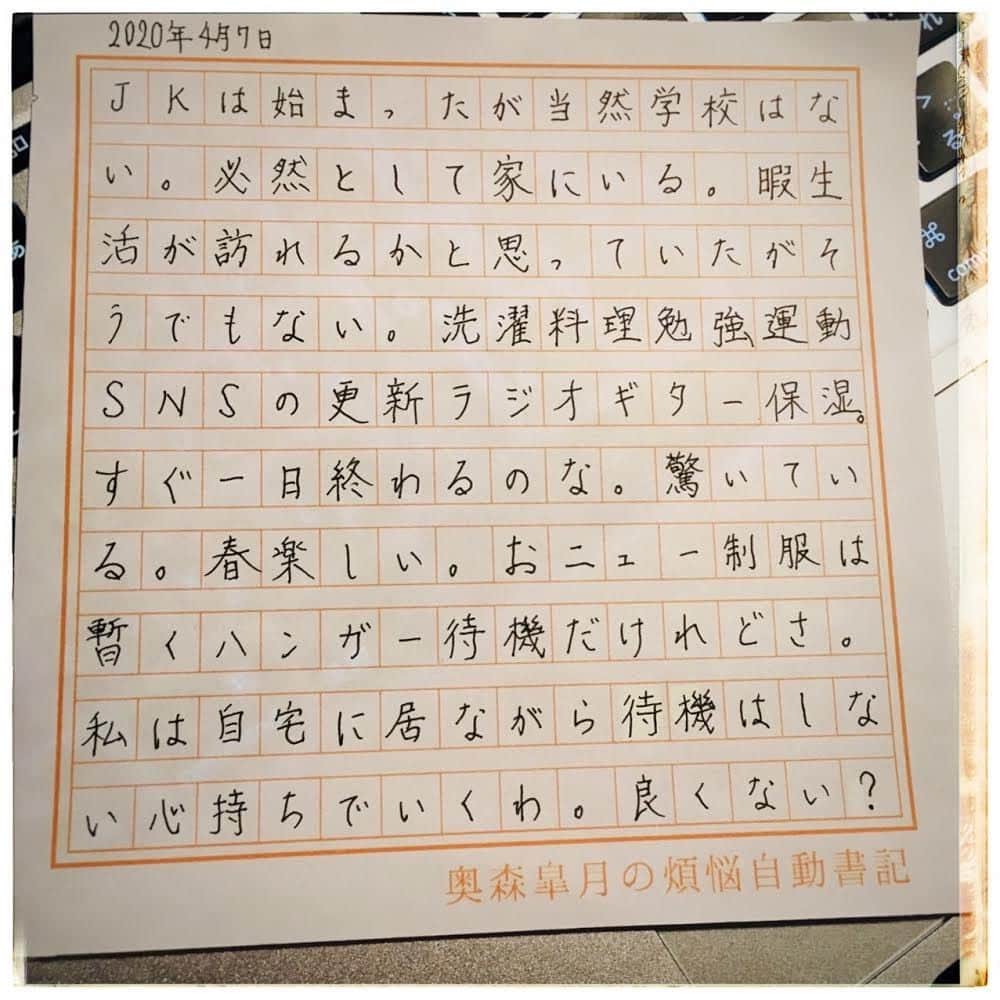 2020年4月7日
JKは始まったが当然学校はな
い。必然として家にいる。暇生
活が訪れるかと思っていたがそ
うでもない。洗濯料理勉強運動
SNSの更新ラジオギター保湿。
すぐ一日終わるのな。驚いてい
る。春楽しい。おニュー制服は
暫くハンガー待機だけれどさ。
私は自宅に居ながら待機はしな
い心持ちでいくわ。良くない？
奥森皐月の煩悩自動書記
れ
る
⌘
comm
あ